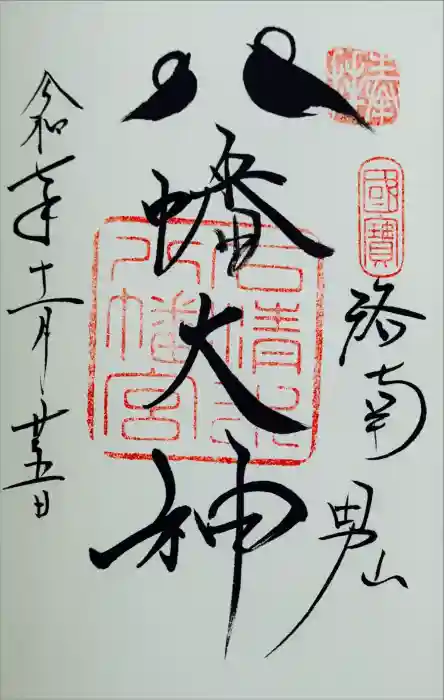 奉拝
國寶
洛南 男山
八幡大神
石清水八幡宮
令和元年十二月廿五日